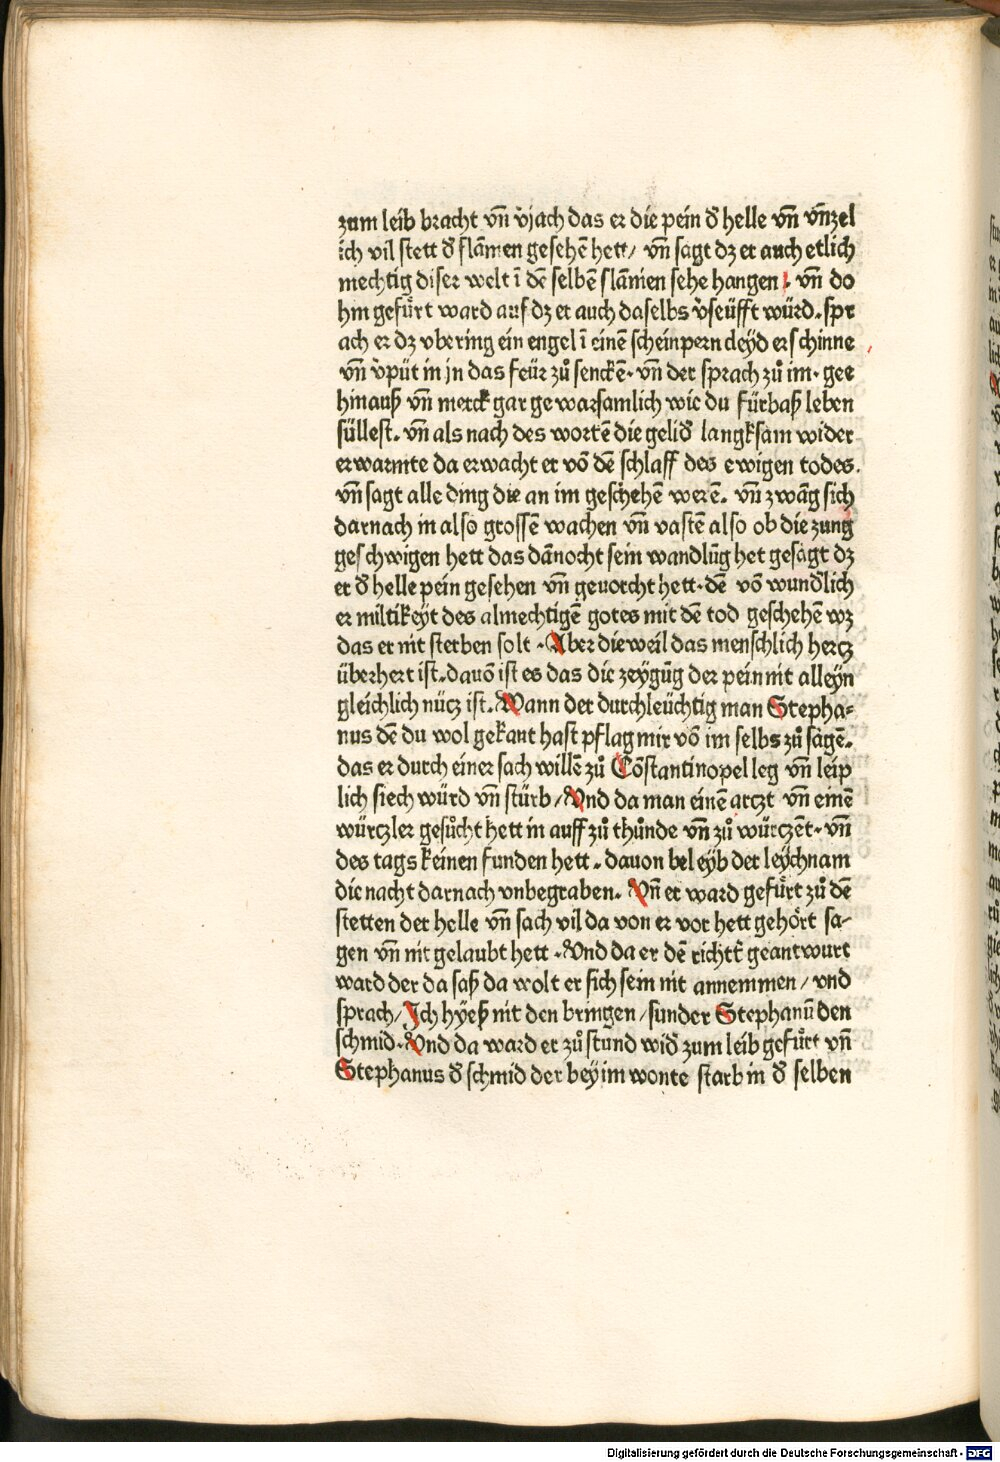 zum leib bracht vn̄ v̾jach das er die pein d̾ helle vn̄ vn̄zel
ich vil stett d̾ flām̄en gesehē hett/ vn̄ sagt dz er auch etlich
mechtig diser welt ī dē selbē flāmen sehe hangen. vn̄ do
hin gefürt ward auf dz er auch daselbs v̾seüfft würd. spr
ach er dz vbering ein engel ī einē scheinpern cleyd erschinne
vn̄ v̾püt in jn das feür zů senckē. vn̄ der sprach zů im. gee
hinauß vn̄ merck gar gewarsamlich wie du fürbaß leben
süllest. vn̄ als nach des wortē die gelid̾ langksam wider
erwarmte da erwacht er vō dē schlaff des ewigen todes.
vn̄ sagt alle ding die an im geschehē werē. vn̄ zwāg sich
darnach in also grossē wachen vn̄ vastē also ob die zung
geschwigen hett das dānocht sein wandlūg het gesagt dz
er d̾ helle pein gesehen vn̄ geuorcht hett. dē vō wund̾lich
er miltikeyt des almechtigē gotes mit dē tod geschehē wz
das er nit sterben solt. Aber dieweil das menschlich hercz
überhert ist. dauō ist es das die zeygūg der pein nit alleyn
gleichlich nücz ist. Wann der durchleüchtig man Stepha-
nus dē du wol gekant hast pflag mir vō im selbs zů sagē.
das er durch einer sach willē zů Cōstantinopel leg vn̄ leip
lich siech würd vn̄ stürb/ Und da man einē arczt vn̄ einē
würczler gesůcht hett in auff zů thůnde vn̄ zů würczēt. vn̄
des tags keinen funden hett. dauon beleyb der leychnam
die nacht darnach vnbegraben. Vn̄ er ward gefürt zů dē
stetten der helle vn̄ sach vil da von er vor hett gehört sa-
gen vn̄ nit gelaubt hett. Und da er dē richtt̾ geantwurt
ward der da saß da wolt er sich sein nit annemmen/ vnd
sprach/ Ich hyeß nit den bringen/ sunder Stephanū den
schmid. Und da ward er zů stund wid̾ zum leib gefürt vn̄
Stephanus d̾ schmid der bey im wonte starb in d̾ selben
Digitalisierung gefördert durch die Deutsche Forschungsgemeinschaft - DFG